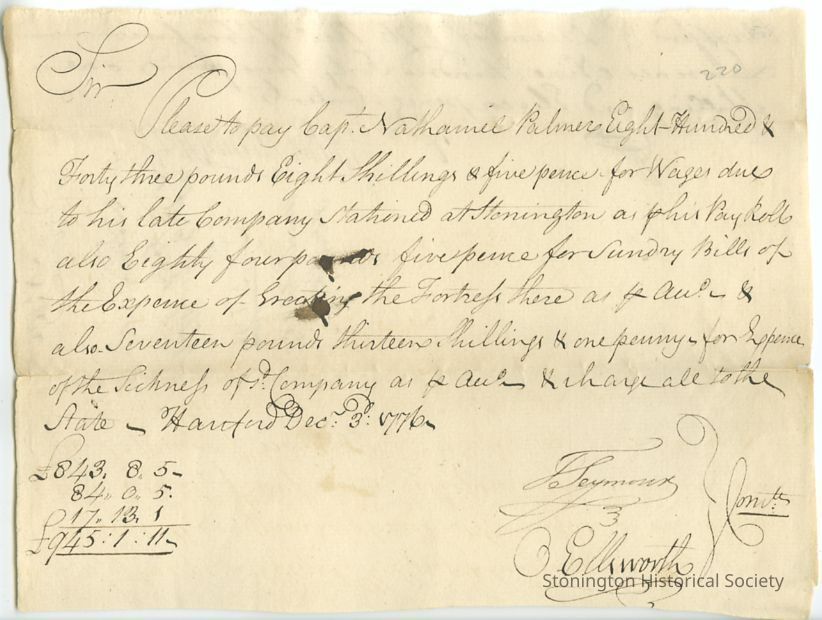 220
Sir
Please to pay Capt. Nathaniel Palmer Eight Hundred &
Forty three pounds Eight Shillings & five pence for Wages due
to his late Company Stationed at Stonington as ⅌ his Pay Roll
also Eighty four pounds five pence for Sundry Bills of
the Expence of Erecting the Fortress there as ⅌ Acco. &
also Seventeen pounds thirteen Shillings & one penny for Expence
of the Sickness of sd. Company as ⅌ Acco. & charge all to the
State - Hartford Decr. 3d. 1776
£843. 8. 5-
84. 0. 5.
17. 13. 1
£945:1:11-
T Seymour
Ellsworth
Comtt
Stonington Historical Society